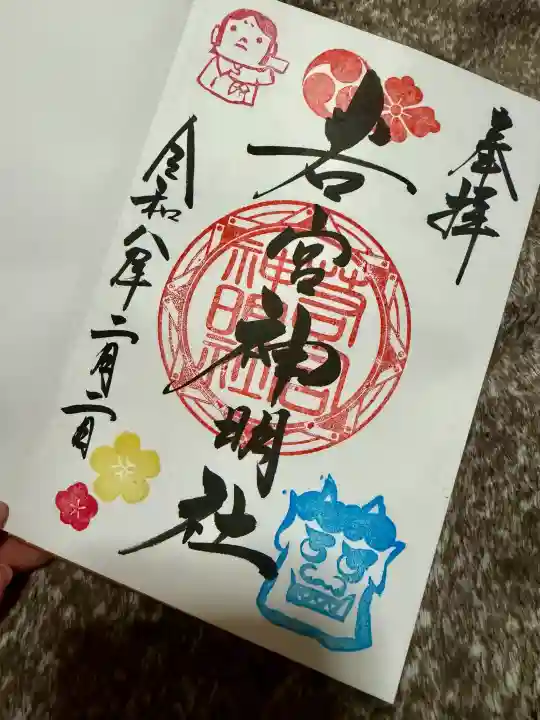 奉拝
若宮神明社
若宮神明社
令和八年二月二日